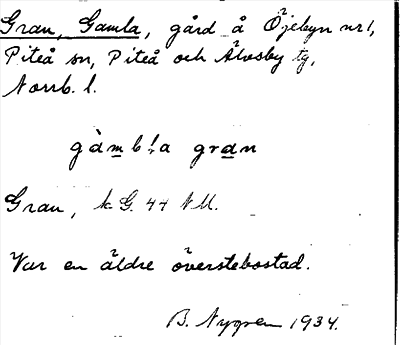 Gran, Gamla, gård å Öjebyn nr 1,
Piteå sn, Piteå och Älvsby tg,
Norrb. l.
gàmb!a gran
Gran, k G. 44 NM.
Var en äldre överstebostad.
B. Nygren 1934.